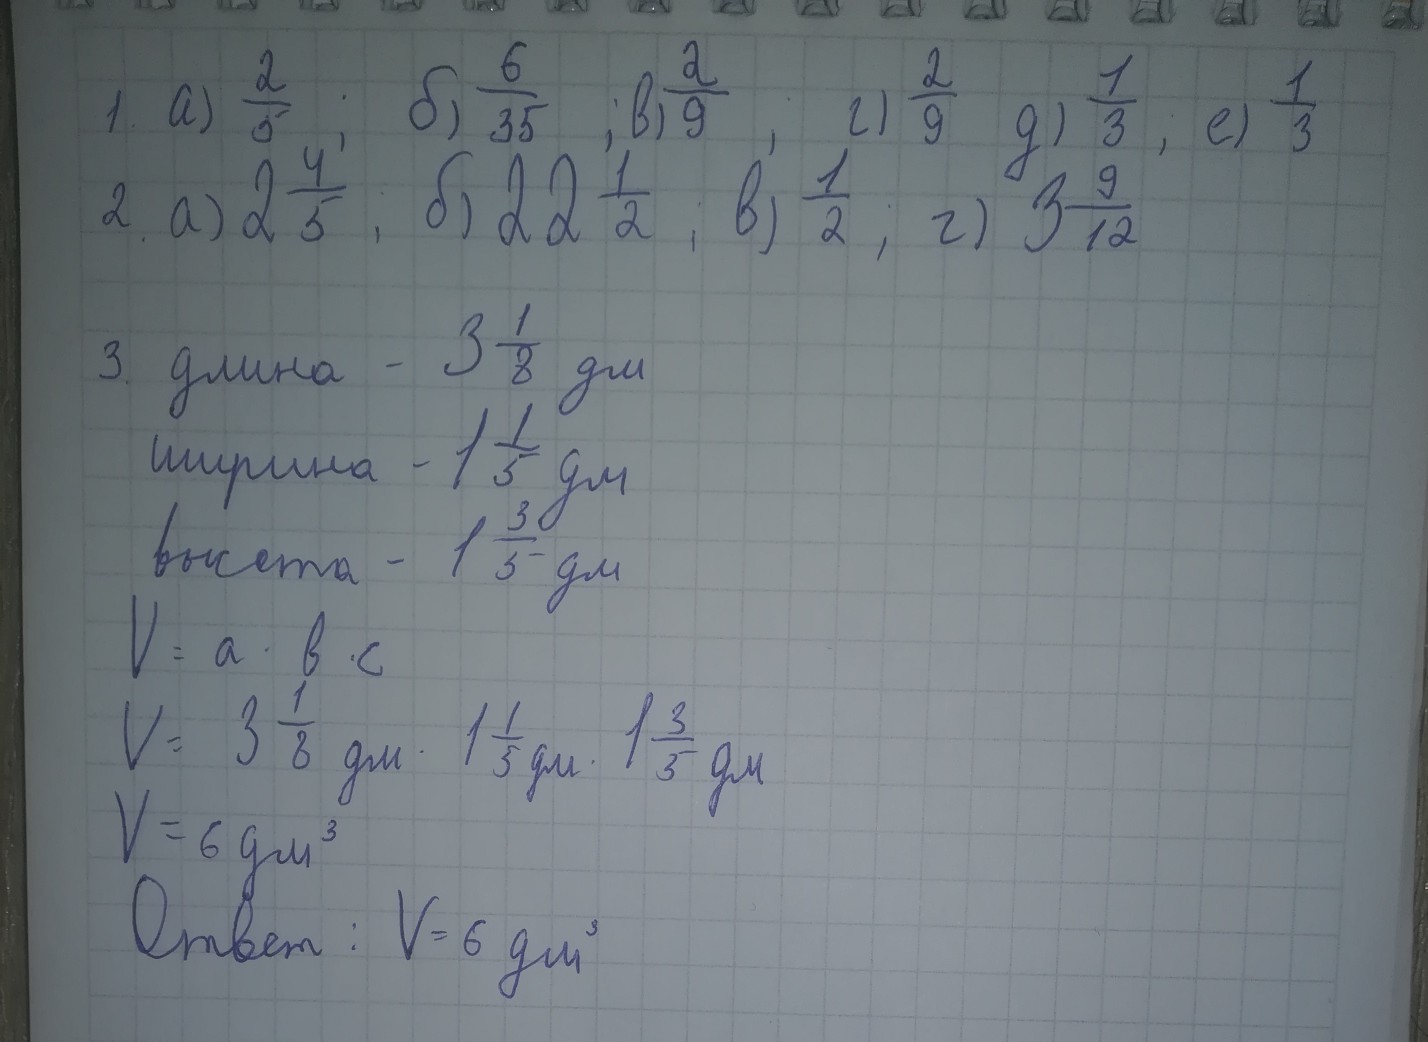 1. а) 2/5; б) 6/35; в) 2/9; г) 2/9 д) 1/3; е) 1/3
2. а) 2 4/5; б) 22 1/2; в) 1/2; г) 3 9/12
3. длина - 3 1/8 дм
ширина - 1 1/5 дм
высота - 1 3/5 дм
V = a · в · c
V = 3 1/8 дм · 1 1/5 дм · 1 3/5 дм
V = 6 дм³
Ответ: V = 6 дм³